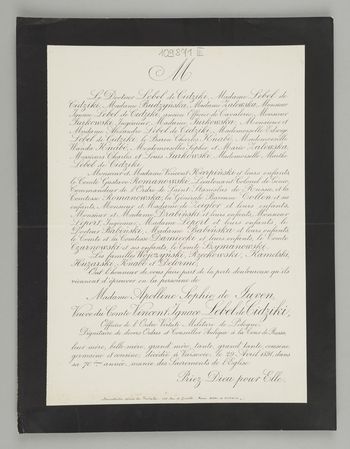 109871 III
M
Le Docteur Lebel de Cidziki, Madame Lebel de
Cidziki, Madame Budzyńska, Madame Zalewska, Monsieur
Ignace Lebel de Cidziki, ancien Officier de Cavalerie, Monsieur
Jurkowski, Ingénieur, Madame Jurkowska, Monsieur et
Madame Alexandre Lebel de Cidziki, Mademoiselle Edwige
Lebel de Cidziki, le Baron Knabé, Mademoiselle
Wanda Knabé, Mesdemoiselles Sophie et Marie Zalewska,
Messieurs Charles et Louis Jurkowski, Mademoiselle Marthe
Lebel de Cidziki,
Monsieur et Madame Vincent et leurs enfants,
le Comte Gustave Romanowski, Lieutenant Colonel de Génie,
Commandeur de l'Ordre de Saint Stanislas de Russie, et la
Comtesse Romanowska, la Générale Baronne et ses
enfants, Monsieur et Madame de Ziegler et leurs enfants,
Monsieur et Madame Drabinski et leurs enfants, Monsieur
Lepert, Ingénieur, Madame Lepert et leurs enfants, le
Docteur Babinski, Madame Babinska et leurs enfants,
le Comte et la Comtesse et leurs enfants, le Comte
Czarnowski et ses enfants, le Comte Szymanowski,
Les familles Wojczynski, Rzetkowski, Karnicki,
Knabé et Delorme,
Ont l'honneur de vous faire part de la perte douloureuse qu'ils
viennent d'éprouver en la personne de
Madame Apolline Sophie de Juven,
Veuve du Comte Vincent Ignace Lebel de Cidziki,
Officier de l'Ordre Virtuti Militari de Pologne,
Dignitaire de divers Ordres et Conseiller Aulique à la Cour de Russie,
leur mère, belle-mère, grand'mère, tante, grand'tante, cousine
germaine et cousine, décédée à Varsovie, le 29 Avril 1891, dans
sa 70ème année, munie des Sacrements de l'Église.
Priez Dieu pour Elle.